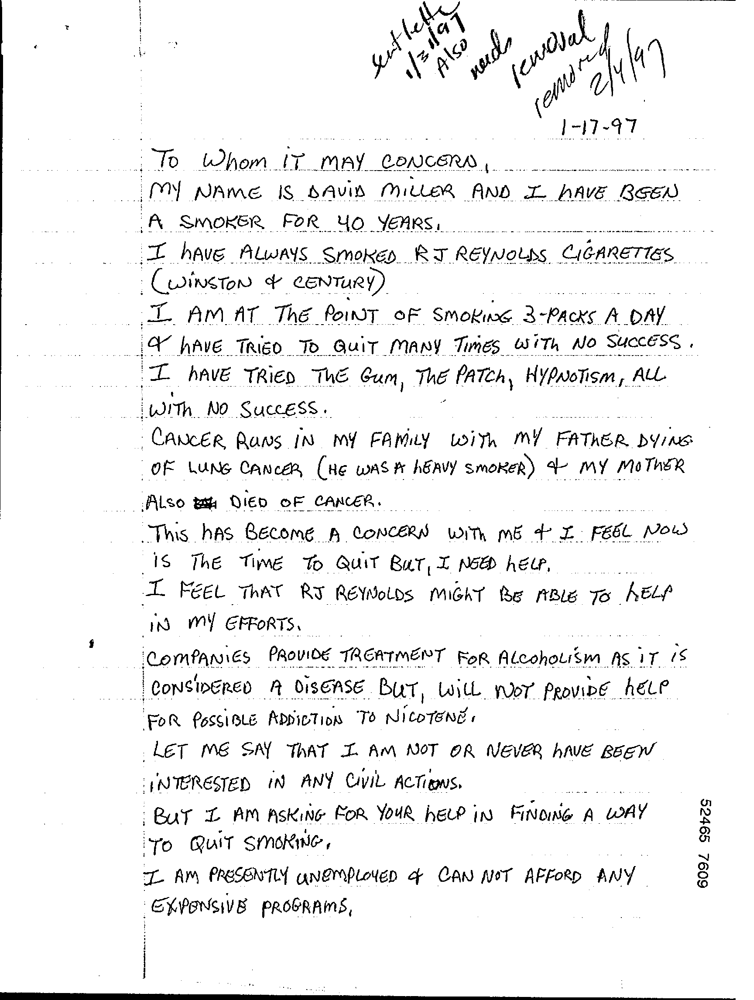 sent letter
1/31/97
Also
needs
removal
removed
2/4/97
1-17-97
To Whom iT MAY CONCERN,
MY NAME IS DAVID MILLER AND I HAVE BEEN
A SMOKER FOR 40 YEARS.
I HAVE ALWAYS SMOKED RJ REYNOLDS CIGARETTES
(WINSTON & CENTURY)
I AM AT THE POINT OF SMOKING 3-PACKS A DAY
& HAVE TRIED TO QUIT MANY TIMES WITH NO SUCCESS.
I HAVE TRIED THE GUM, THE PATCH, HYPNOTISM, ALL
WITH NO SUCCESS.
CANCER RUNS IN MY FAMILY WITH MY FATHER DYING
OF LUNG CANCER (HE WAS A HEAVY SMOKER) & MY MOTHER
ALSO DIED OF CANCER.
THIS HAS BECOME A CONCERN WITH ME & I FEEL NOW
IS THE TIME TO QUIT BUT, I NEED HELP.
I FEEL THAT RJ REYNOLDS MIGHT BE ABLE TO HELP
IN MY EFFORTS.
COMPANIES PROVIDE TREATMENT FOR ALCOHOLISM AS IT IS
CONSIDERED A DISEASE BUT, WILL NOT PROVIDE HELP
FOR POSSIBLE ADDICTION TO NICOTENE.
LET ME SAY THAT I AM NOT OR NEVER HAVE BEEN
INTERESTED IN ANY CIVIL ACTIONS.
BUT I AM ASKING FOR YOUR HELP IN FINDING A WAY
TO QUIT SMOKING.
I AM PRESENTLY UNEMPLOYED & CAN NOT AFFORD ANY
EXPENSIVE PROGRAMS,
52465 7609